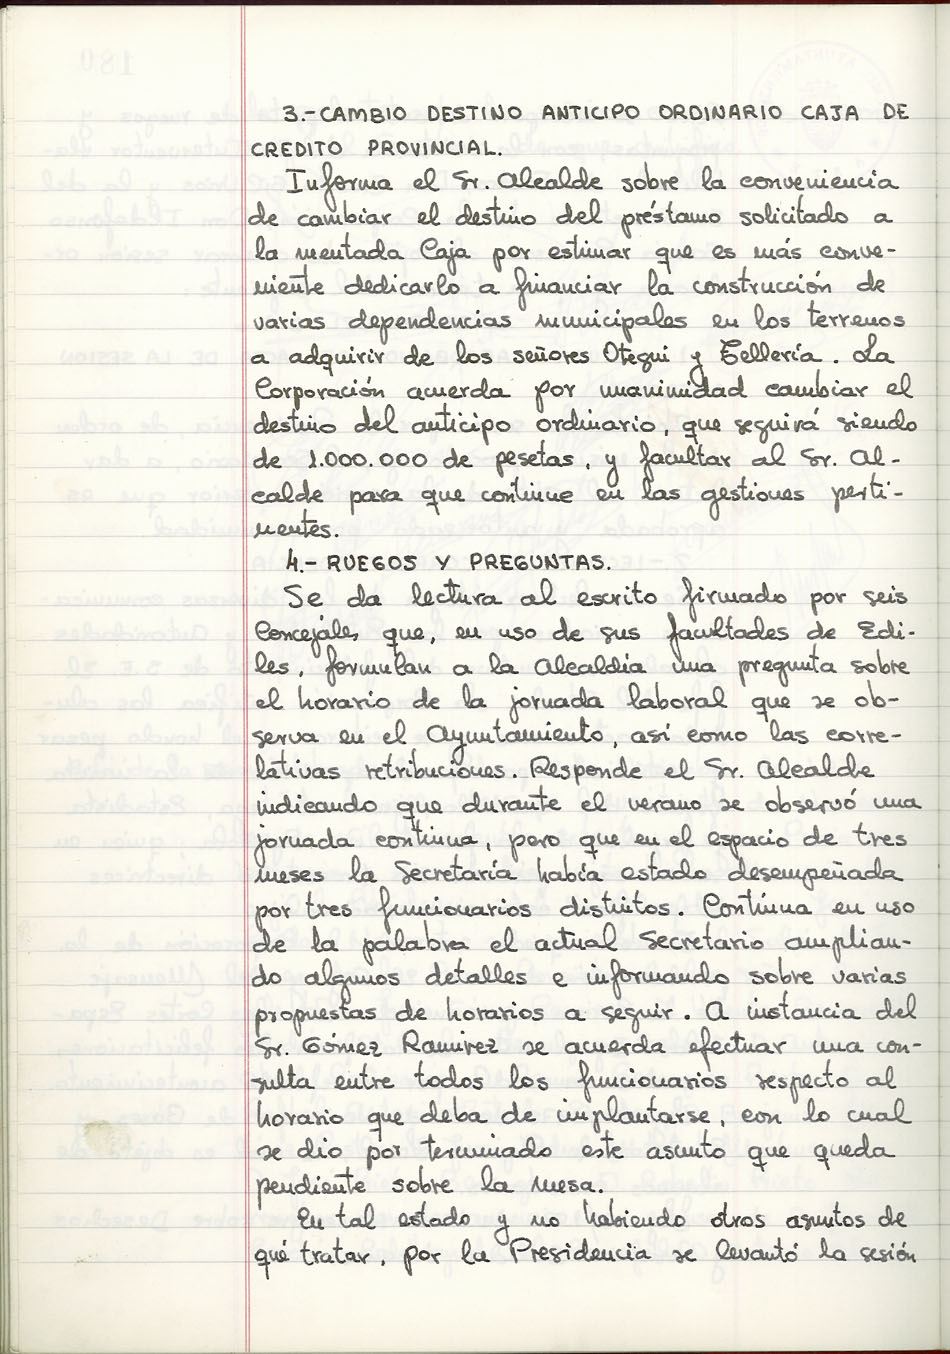 3.- CAMBIO DESTINO ANTICIPO ORDINARIO CAJA DE
CREDITO PROVINCIAL.
Informa el Sr. Alcalde sobre la conveniencia
de cambiar el destino del préstamo solicitado a
la mentada Caja por estimar que es más conve-
niente dedicarlo a financiar la construcción de
varias dependencias municipales en los terrenos
a adquirir de los señores Otegui y Tellería. La
Corporación acuerda por unanimidad cambiar el
destino del anticipo ordinario, que seguirá siendo
de 1.000.000 de pesetas, y facultar al Sr. Al-
calde para que continue en las gestiones perti-
nentes.
4.- RUEGOS Y PREGUNTAS.
Se da lectura al escrito firmado por seis
Concejales que, en uso de sus facultades de Edi-
les, formulan a la Alcaldía una pregunta sobre
el horario de la jornada laboral que se ob-
serva en el Ayuntamiento, así como las corre-
lativas retribuciones. Responde el Sr. Alcalde
indicando que durante el verano se observó una
jornada continua, pero que en el espacio de tres
meses la Secretaría había estado desempeñada
por tres funcionarios distintos. Continua en uso
de la palabra el actual Secretario amplian-
do algunos detalles e informando sobre varias
propuestas de horarios a seguir. A instancia del
Sr. Gómez Ramirez se acuerda efectuar una con-
sulta entre todos los funcionarios respecto al
horario que deba de implantarse, con lo cual
se dio por terminado este asunto que queda
pendiente sobre la mesa.
En tal estado y no habiendo otros asuntos de
qué tratar, por la Presidencia se levantó la sesión